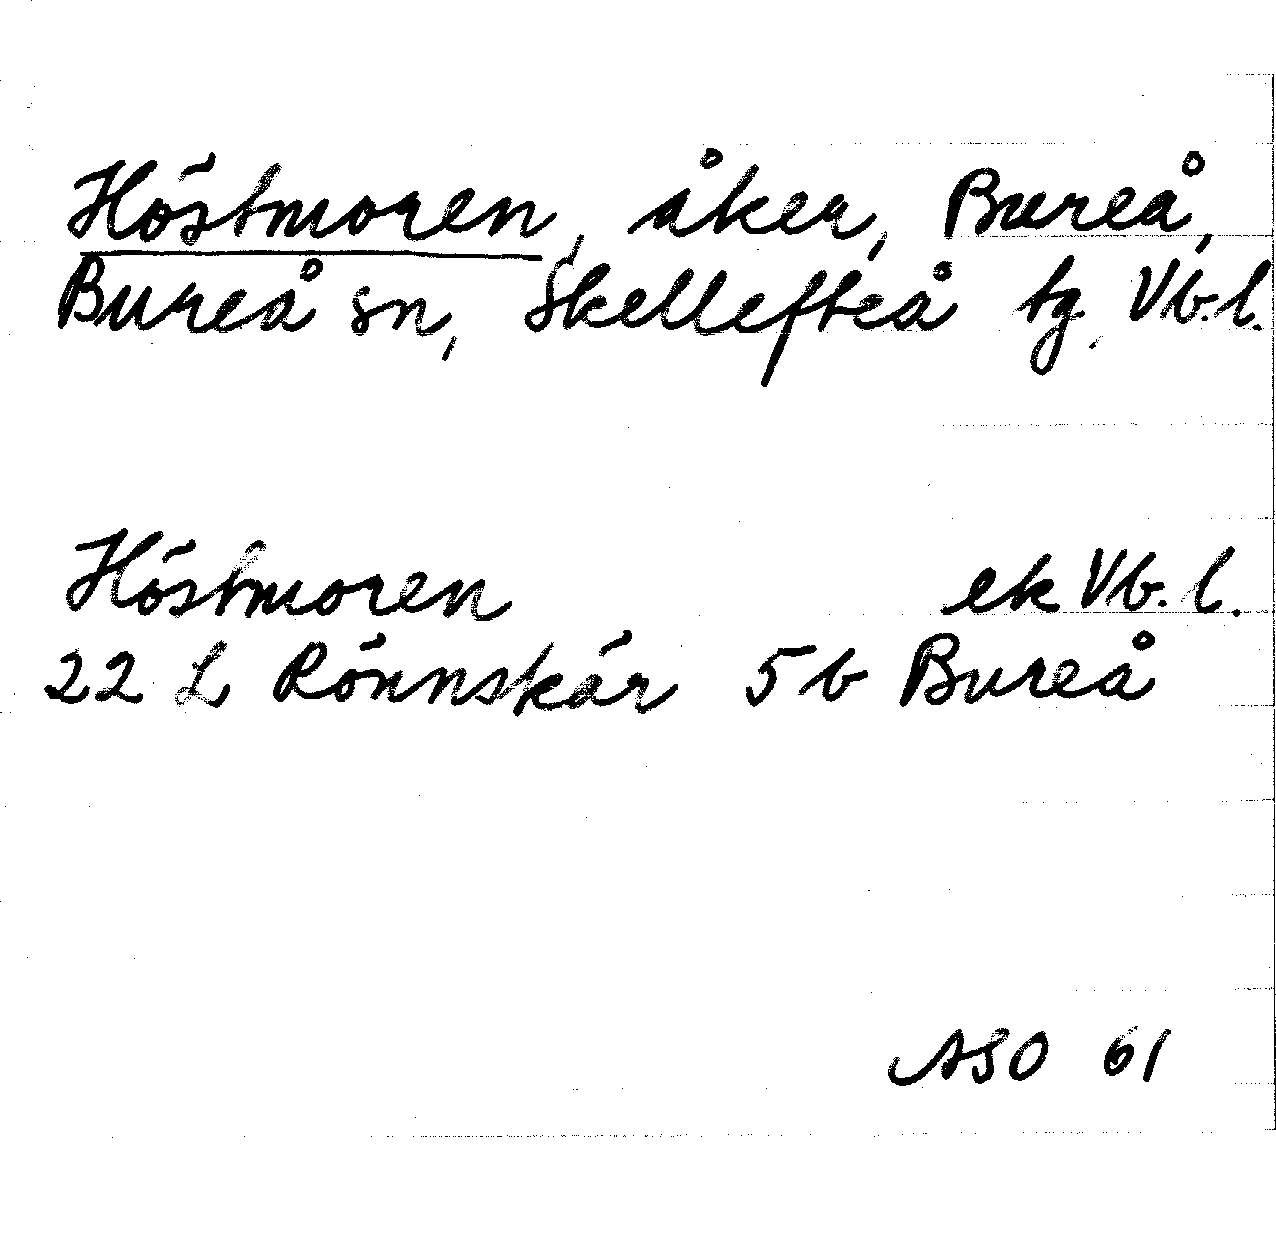 Höstmoren, åker, Bureå,
Bureå sn, Skellefteå tg. Vb.l.
Höstmoren ek Vb.l.
22 L Rönnskär 5b Bureå
ASO 61